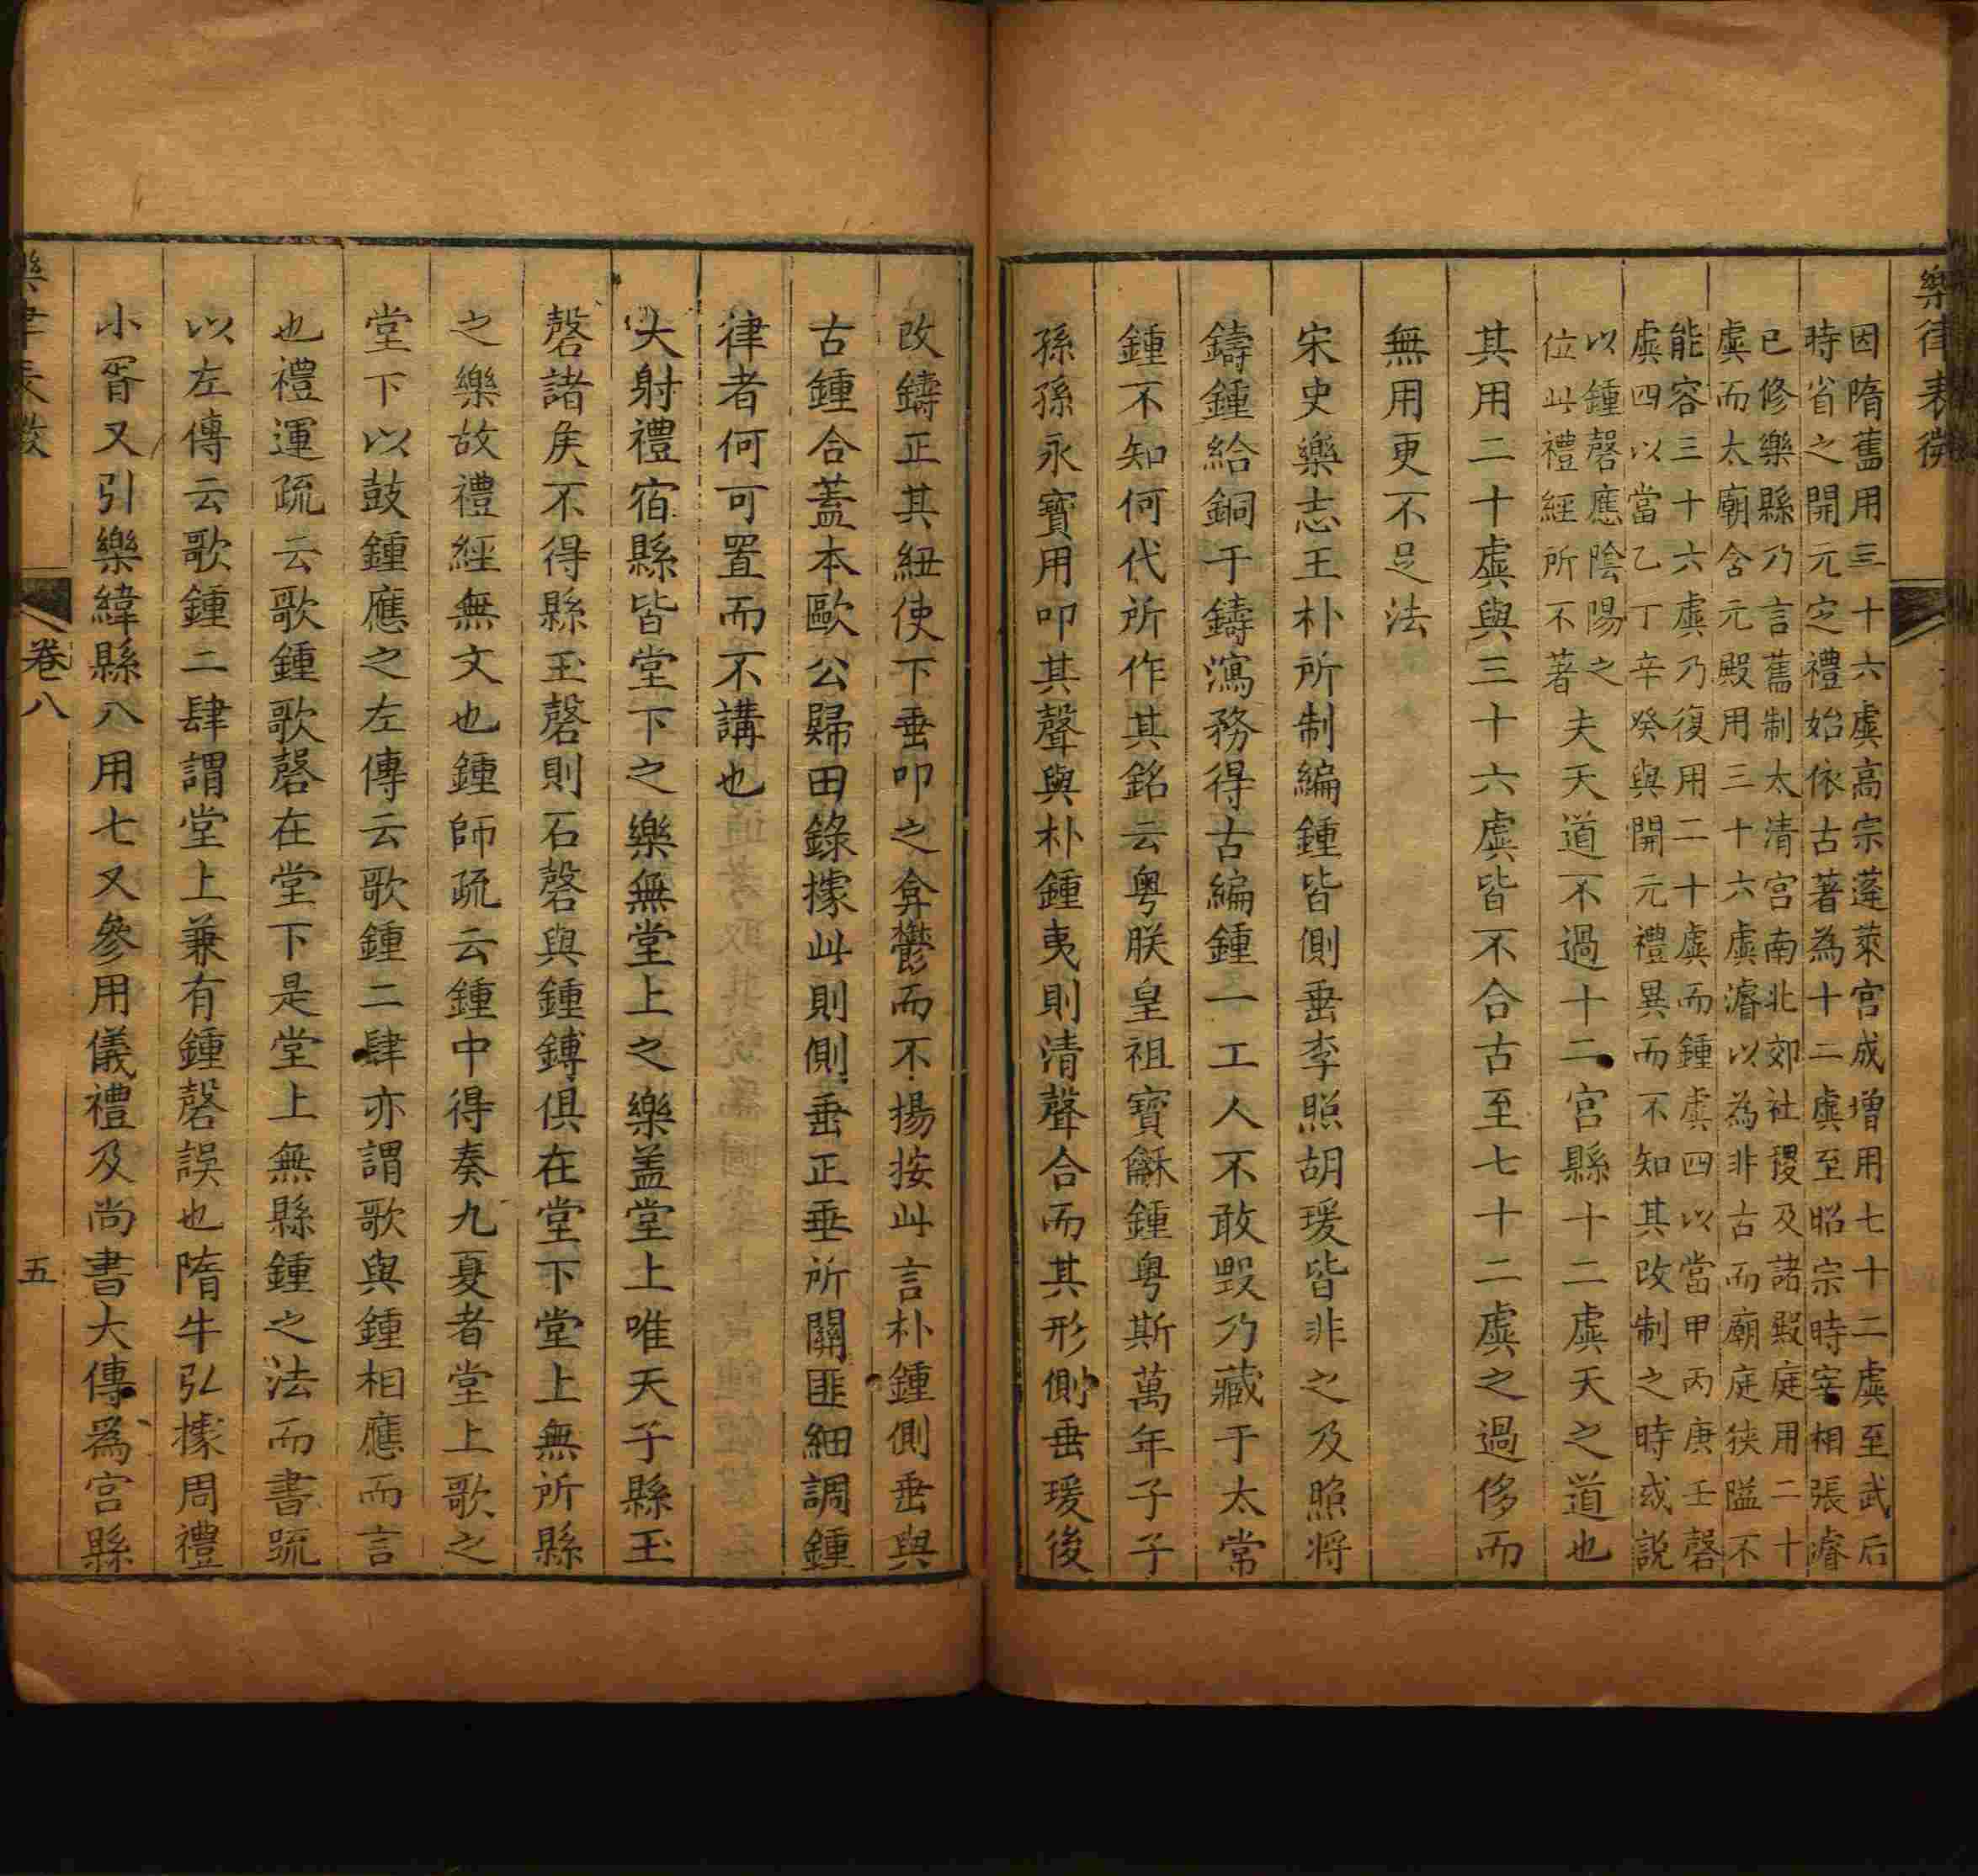 樂律表微
因隋舊用三十六虡高宗蓬萊宮成增用七十二虡至武后
時省之開元定禮始依古著為十二虡至昭宗時宰相張濬
已修樂縣乃言舊制太清宮南北郊社稷及諸殿庭用二十
虡而太廟含元殿用三十六虡濬以為非古而廟庭狹隘不
能容三十六虡乃復用二十虡而鍾虡四以當甲丙庚壬磬
虡四以當乙丁辛癸與開元禮異而不知其改制之時或說
以鍾磬應陰陽之
位此禮經所不著
夫天道不過十二宮縣十二虡天之道也
其用二十虡與三十六虡皆不合古至七十二虡之過侈而
無用更不足法
宋史樂志王朴所制編鍾皆側垂李照胡瑗皆非之及照將
鑄鍾給銅于鑄瀉務得古編鍾一工人不敢毀乃藏于太常
鍾不知何代所作其銘云粤朕皇祖寶龢鍾粤斯萬年子子
孫孫永寶用叩其聲與朴鍾夷則清聲合而其形側垂瑗後
改鑄正其紐使下垂叩之弇鬱而不揚按此言朴鍾側垂與
古鍾合蓋本歐公歸田錄據此則側垂正垂所關匪細調鍾
律者何可置而不講也
大射禮宿縣皆堂下之樂無堂上之樂盖堂上唯天子縣玉
磬諸矦不得縣玉磬則石磬與鍾鎛俱在堂下堂上無所縣
之樂故禮經無文也鍾師疏云鍾中得奏九夏者堂上歌之
堂下以鼓鍾應之左傳云歌鍾二肆亦謂歌與鍾相應而言
也禮運疏云歌鍾歌磬在堂下是堂上無縣鍾之法而書疏
以左傳云歌鍾二肆謂堂上兼有鍾磬誤也隋牛弘據周禮
小胥又引樂緯縣八用七又參用儀禮及尚書大傳爲宮縣
樂律表微
卷八
五